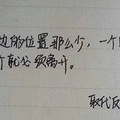 边的位置那么少,一个
就必须离开。
取代反